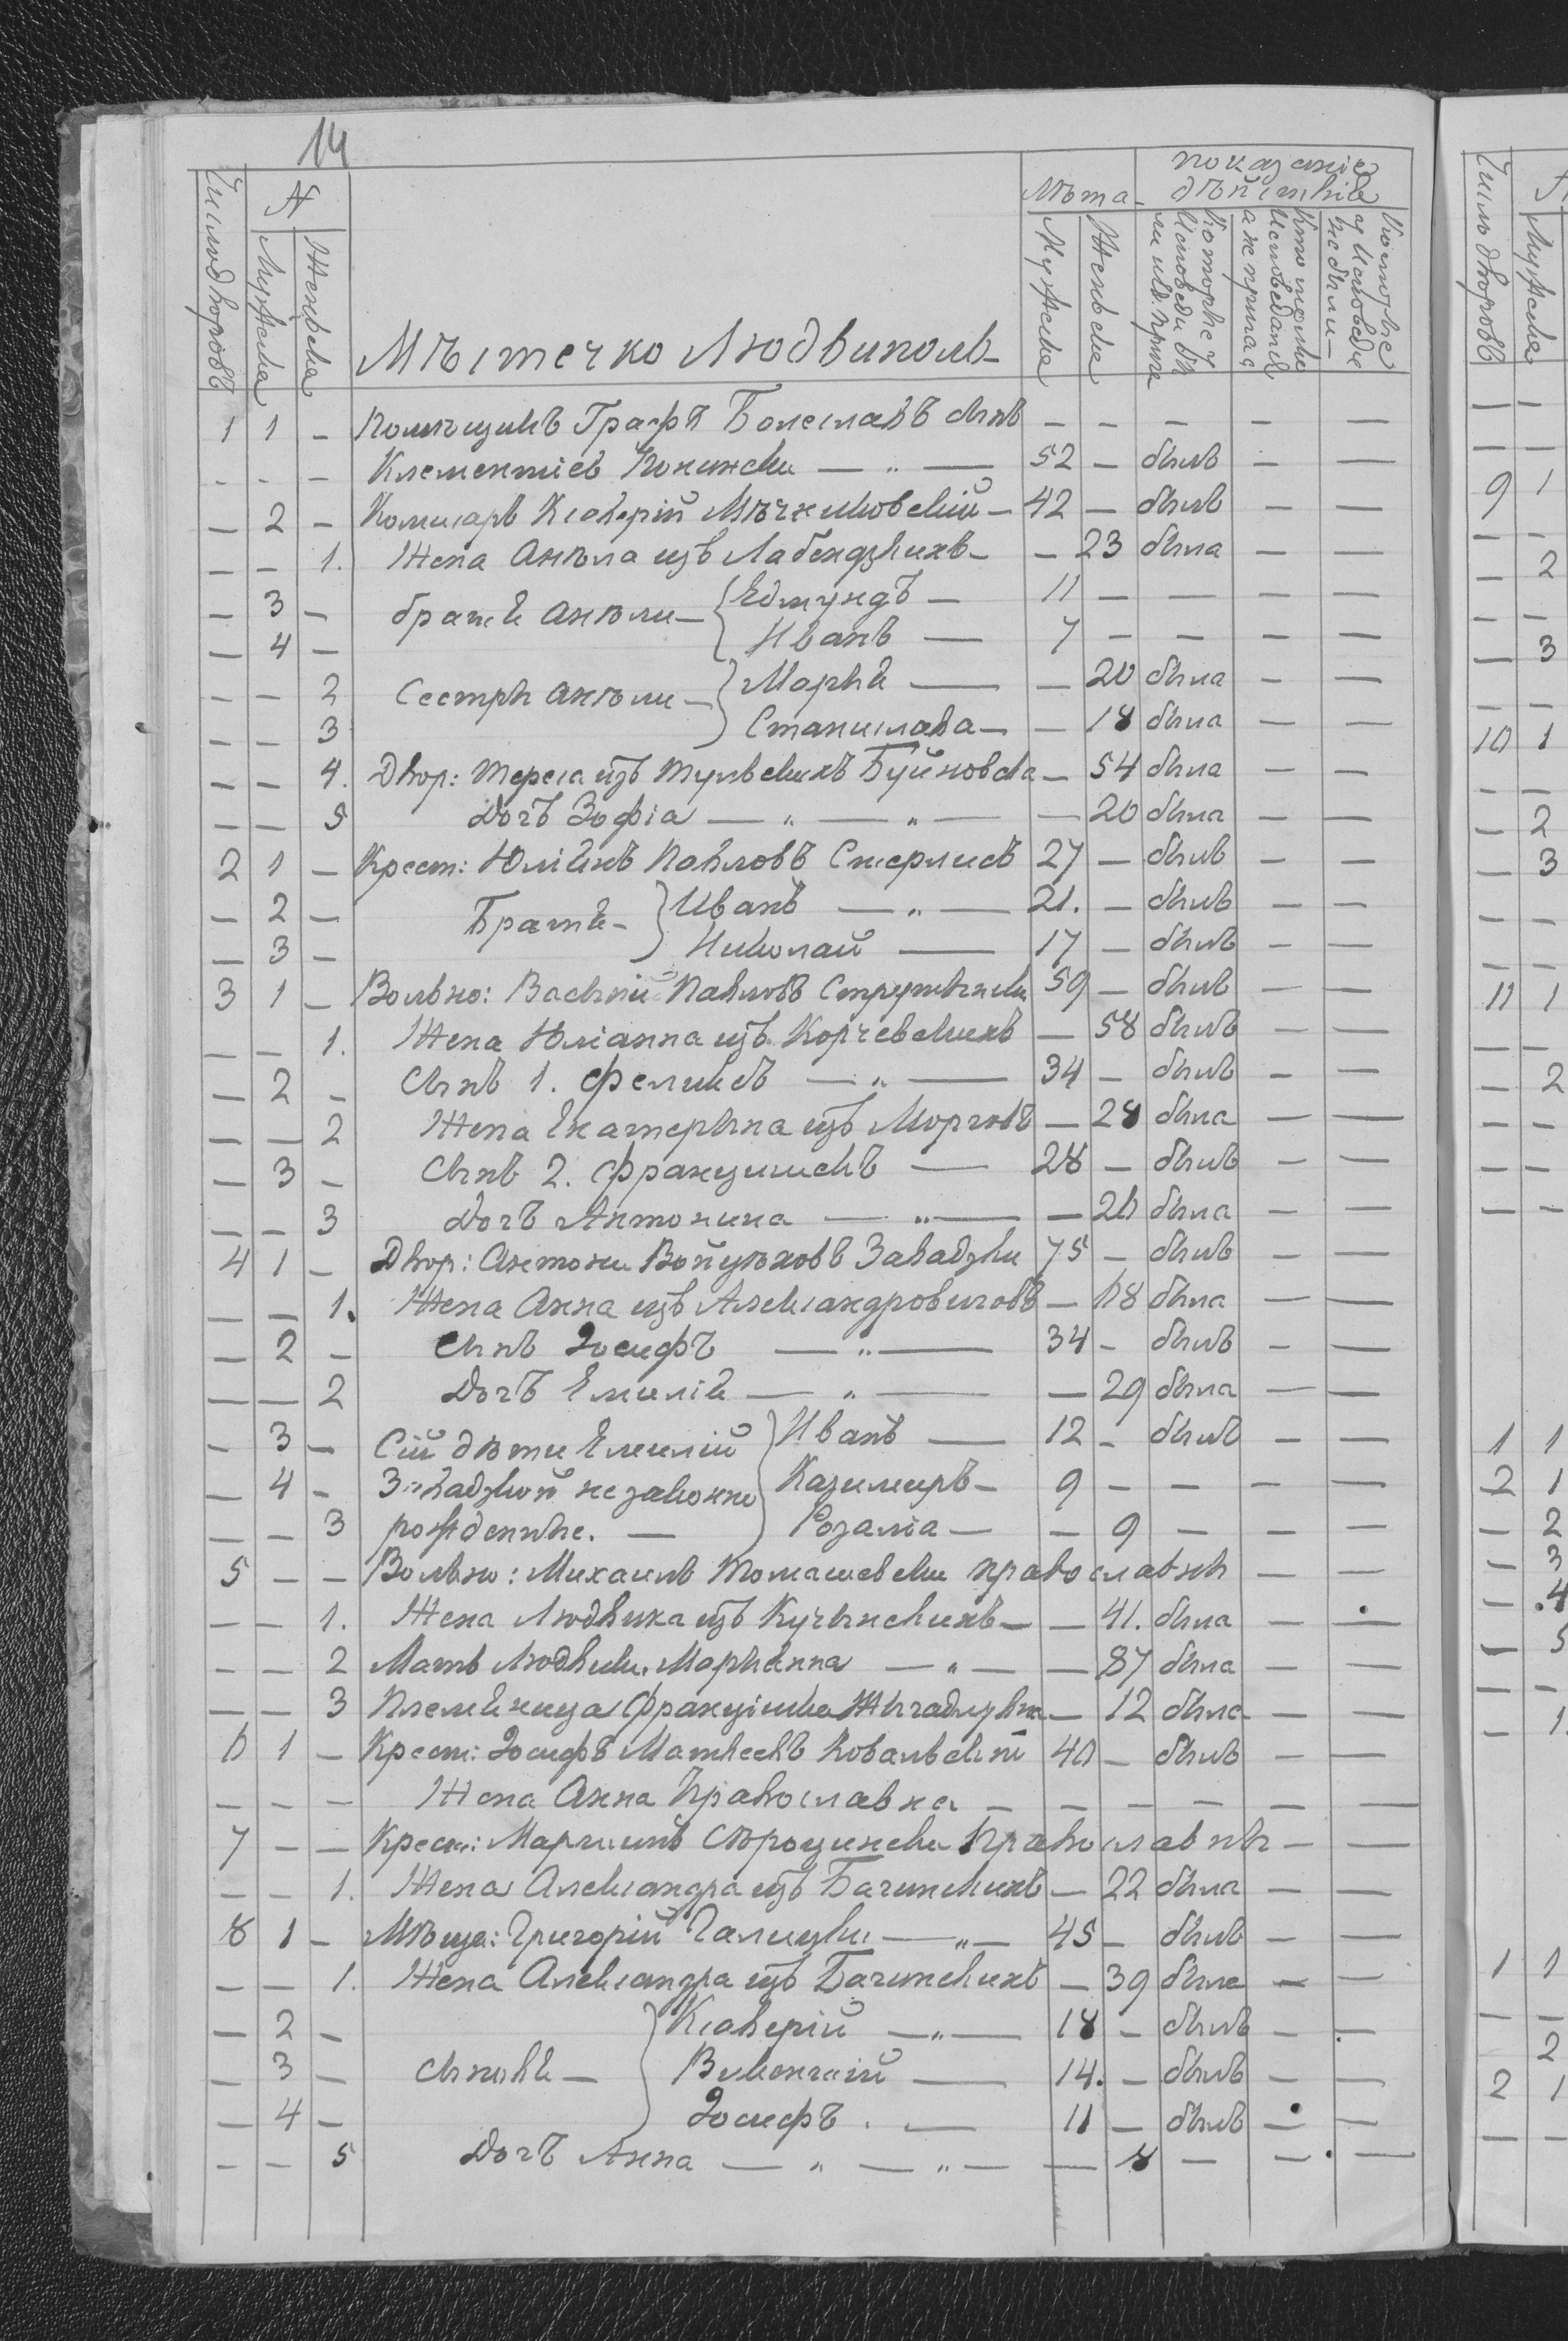 14
Число дворовъ
№
Мужска
Женьска
Мѣстечко Людвиполь
Лѣта
Мужска
Женьска
показаніе дѣйствія
Которые у Исповеди были и Св. прича
Кто только Исповедался а не причас
Которые у Исповеди не были
1 1 — Помѣщикъ Графъ Болеславъ сынъ — — — — —
- - - Клементіев Понински — „ — 52 — былъ — —
— 2 — Комисаръ Ксаверій Мѣчниковский — 42 — былъ — —
— — 1. Жена Анѣла изъ Лабендзкихъ — — 23 была — —
— 3 — братья Анѣли — { Едмундъ — 11 — — — —
— 4 — Иванъ — 7 — — — —
— — 2 Сестры Анѣли — } Марья — — 20 была — —
— — 3 Станислава — — 18 была — —
— — 4. Двор: Тереса изъ Тульскихъ Буйновска — 54 была — —
— — 5 Дочъ Зофіа — „ — „ — — 20 была — —
2 1 — Крест: Юліянъ Павловъ 27 — былъ — —
— 2 — Братья — } Иванъ — „ — 21. — былъ — —
— 3 — Николай — 17 — былъ — —
3 1 — Вольно: Васылий Павловъ 59 — былъ — —
— — 1. Жена Юліанна изъ Корчевскихъ — 58 былъ — —
— 2 — Сынъ 1. Феликсъ — „ — 34 — былъ — —
— — 2 Жена Екатерына изъ — 28 была — —
— 3 — Сынъ 2. Францишекъ — 28 — былъ — —
— — 3 Дочъ Антонина — „ — — 20 была — —
4 1 — Двор: Антони Войцѣховъ Завадзки 75 — былъ — —
— — 1. Жена Анна изъ Александровичовъ — 68 была — —
— 2 — Сынъ Іосифъ — „ — 34 — былъ — —
— — 2 Дочъ Емилія — „ — — 29 была — —
— 3 — Сій дѣти Емилій } Иванъ — 12 — былъ — —
— 4 — Завадзкой незаконно Казимиръ — 9 — — — —
— — 3 рожденные. — Розаліа — — 9 — — —
5 — — Вольно: Михаилъ Томашевски православны — —
— — 1. Жена Людвика изъ Кучынскихъ — — 41. была — —
— — 2 Мать Людвики Марыанна — „ — — 87 была — —
— — 3 Племяница Францішка — 12 была — —
6 1 — Крест: Іосифъ Матвеевъ Ковальскій 40 — былъ — —
— — — Жена Анна Православна — — — — — —
7 — — Крест: Мартинъ Православны — —
— — 1. Жена Александра изъ Багинскихъ — 22 была — —
8 1 — Мѣща: Григорій Галицки — „ — 45 — былъ — —
— — 1. Жена Александра изъ Багинскихъ — 39 была — —
— 2 — } Ксаверій — „ — 18 — былъ — —
— 3 — Сыновья — Викентий — 14. — былъ — —
— 4 — Іосифъ — 11 — былъ — —
— — 5 Дочъ Анна — „ — „ — — 8 — — —
Число дворовъ
Мужска
9 1
— 2
— 3
10 1
— 2
— 3
11 1
— 2
1 1
2 1
— 2
— 3
— 4
— 5
— 1
1 1
2
2 1